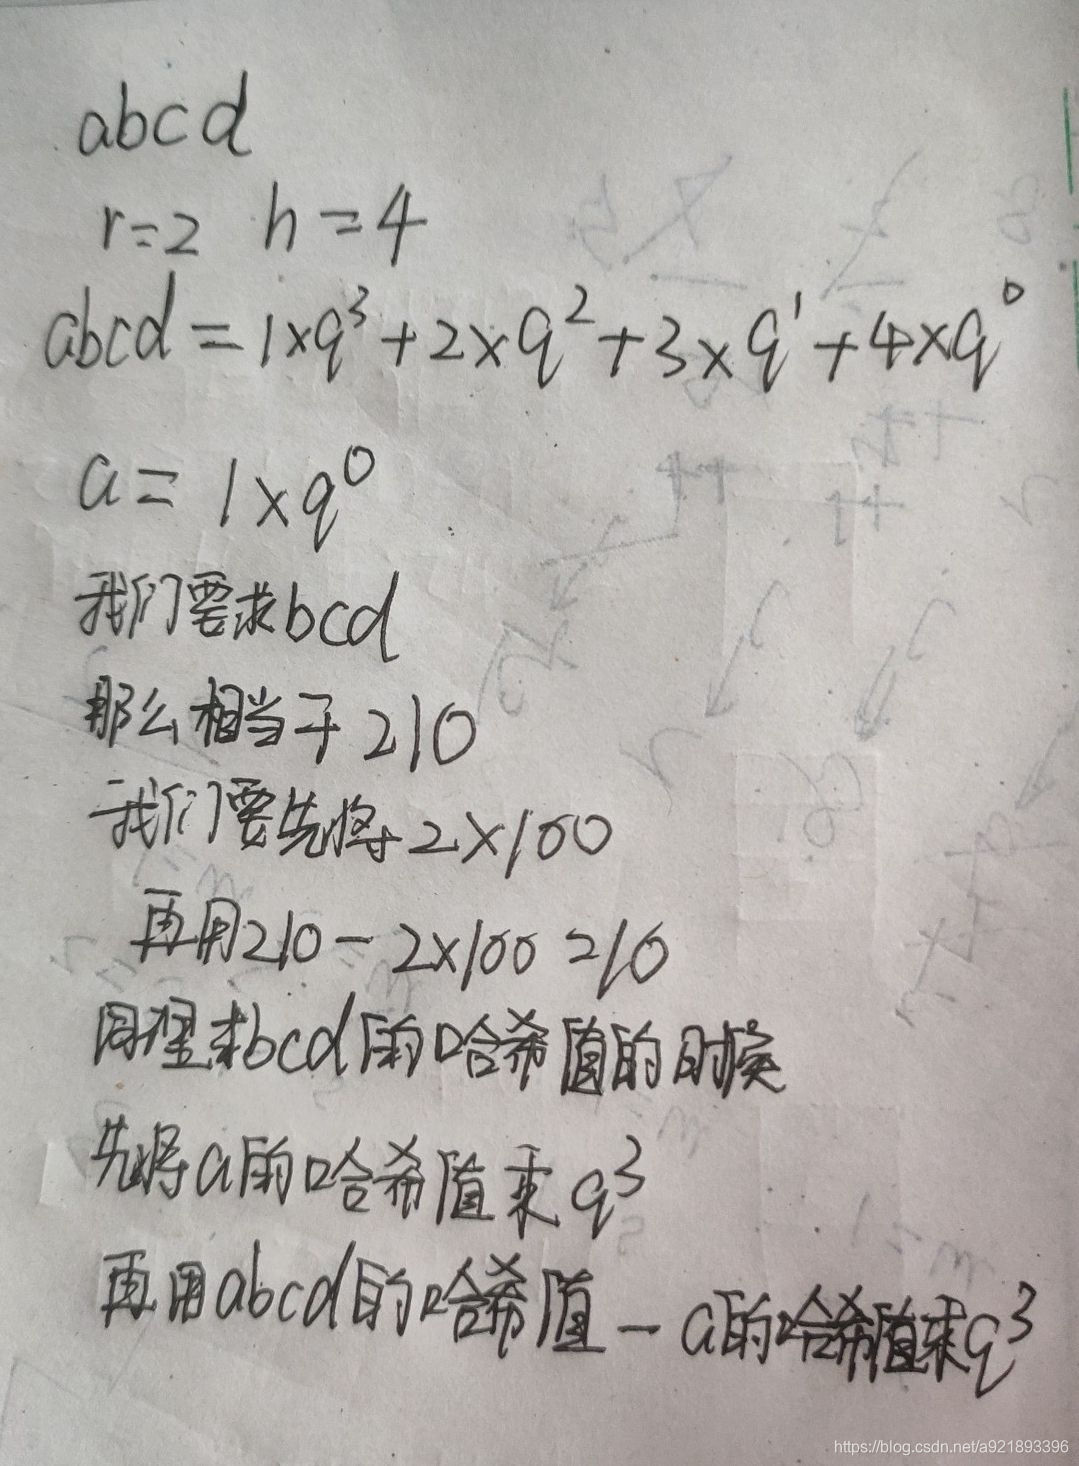 abcd
r=2 h=4
abcd=1×q³+2×q²+3×q¹+4×q⁰
a=1×q⁰
我们要求bcd
那么相当于210
我们要先将2×100
再用210-2×100=10
同理求bcd的哈希值的时候
先将a的哈希值乘q³
再用abcd的哈希值-a的哈希值乘q³
https://blog.csdn.net/a921893396